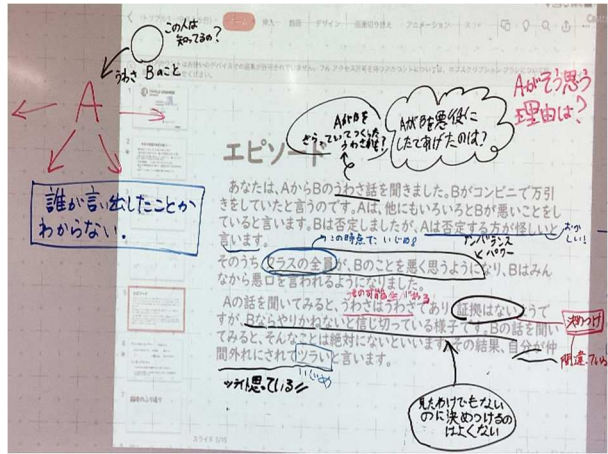 この人は
知ってるの？
うわさ Bのこと
A
誰が言い出したことか
わからない。
挿入
描画
デザイン
画面切り替え
アニメーション
Aがそう思う
理由は？
AがBを
うわさ
AがBを悪役に
したてあげたのは？
エピソード
あなたは、AからBのうわさ話を聞きました。Bがコンビニで万引
きをしていたと言うのです。Aは、他にもいろいろとBが悪いことをし
ていると言います。Bは否定しましたが、Aは否定する方が怪しいと
言います。
おかしい！
この時点で、いじめ
アンバランス
パワー
そのうち、クラスの全員が、Bのことを悪く思うようになり、Bはみん
なから悪口を言われるようになりました。
その可能性がある
Aの話を聞いてみると、うわさはうわさであり、証拠はないようで
すが、Bならやりかねないと信じ切っている様子です。Bの話を聞い
てみると、そんなことは絶対にないといいます。その結果、自分が仲
間外れにされてツライと言います。
決めつけ
間違っている
いじめ
ツライと思っている
見たわけでもない
のに決めつけるの
はよくない
スライド 5/10